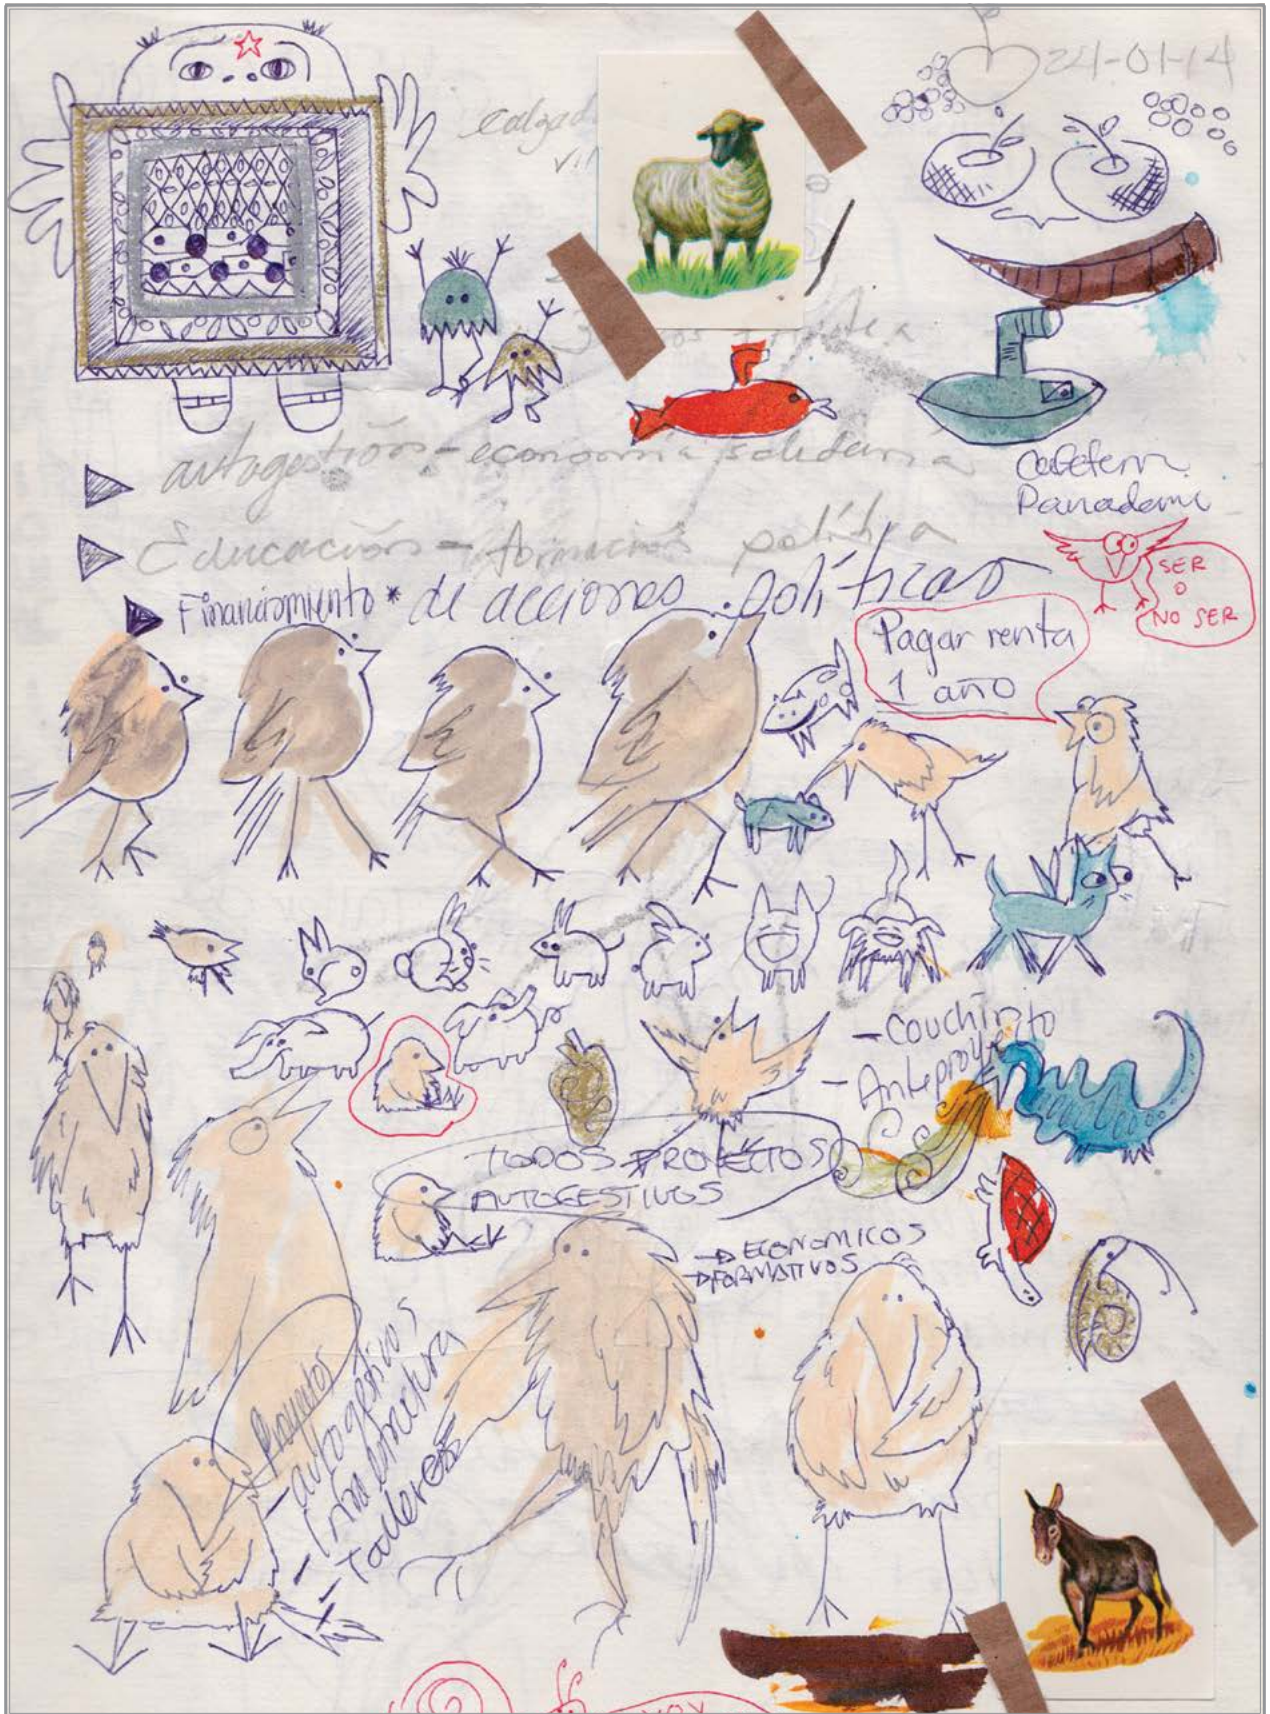 24-01-14
autogestión - economía solidaria
Educación - formación política
Financiamiento * de acciones políticas
SER
O
NO SER
Pagar renta
1 año
- Couchirito
- Anteproye
TODOS PROYECTOS
AUTOGESTIVOS
→ ECONOMICOS
→ FORMATIVOS
Proyectos
- autogestivos
- Infraestructura
- Talleres
VOY